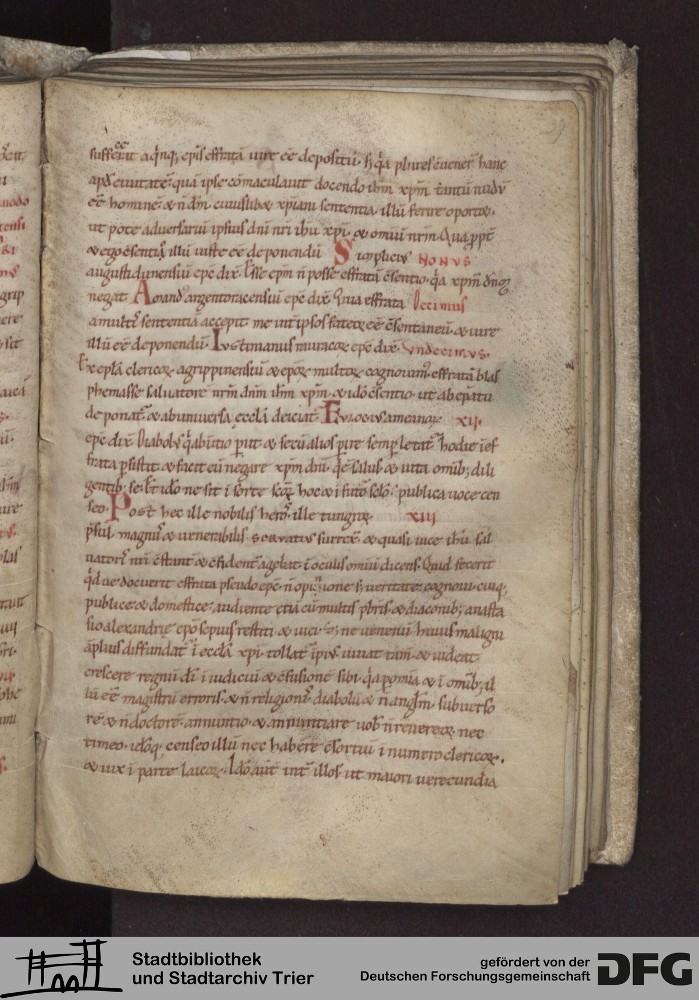 suffecerat a qnq; epis effratā uire eē depositū · sꝫ qa plures cuenert hanc
apd ciuitatē quā ipse comaculauit docendo ihm xpm tantū nudū
eē hominē & n dm cuuislibet xpiani sententia illū ferire oportet ·
ut pote aduersariū ipsius dni nri ihu xpi · & omniū nrm · Qua ppt
& ego csentiens illū iuste eē deponendū Simplicius NONVS
augustidunensiū epc dix · Esse epm n posse effratā csentio · qa xpm dm
negat Amand argentoracensiū epc dix · Quia effrata Decimus
a multis sententia accepit me int ipsos fateor eē csentaneū & uire
illū eē deponendū · Iustinianus rauracor epc dix · Vndecimus ·
Ex epla clericor agrippinensiū & epor multor cognouim effratā blas
phemasse saluatorē nrm dnm ihm xpm & ido csentio · ut ab epatu
deponat & ab uniuersa eccla deiciat · Eulogius amenar XII ·
epc dix · Diabolus q ab initio perit & secū alios perire semp letat · hodie i ef
frata psistit & facit eū negare xpm dm · q ē salus & uita omib; dili
gentib; se ·
seo · Post hec ille nobilis hero · ille tungror XIII
psul magnus & uenerabilis seruatius surrex · & quasi uice ihu sal
uatoris nri cstant & cfident agebat i oculis omiū dicens · Quid fecerit
qd ue docuerit effrata pseudo epc n opinione s; ueritate cognoui · cuiq;
publice & domestice audiente etiā cū multis pbris & diaconib; anasta
sio alexandrie epo sepius restiti & uici · ne uenenū huius maligni
amplius diffundat i eccla xpi · tollat ipius uiuat tam & uideat
crescere regnū di i iudiciū & cfusionē sibi · qa p omia & i omib; il
lū eē magistrū erroris & n religionis diabolū & n anglm · subuerso
rē & n doctorē annuntio & annuntiare uob n reuereor nec
timeo · idoq; censeo illū nec habere csortiū i numero clericor ·
& uix i parte laicor · Ido aut int illos ut maiori uerecundia
Stadtbibliothek
und Stadtarchiv Trier
gefördert von der
Deutschen Forschungsgemeinschaft
DFG